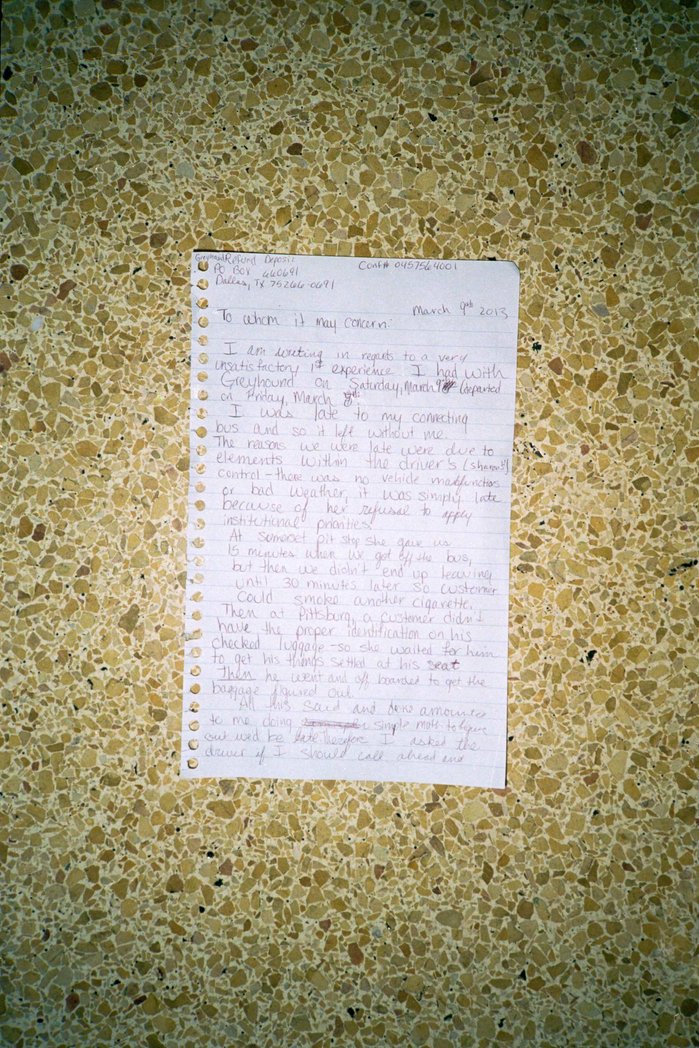 Greyhound Refund Deposit
PO Box 660691 Conf# 0457564001
Dallas, TX 75266-0691
March 9th 2013
To whom it may concern:
I am writing in reguts to a very
unsatisfactory 1st experience I had with
Greyhound on Saturday, March 9th (departed
on Friday, March 8th.
I was late to my connecting
bus and so it left without me.
The reasons we were late were due to
elements within the driver's (sharon's)
control - there was no vehicle malfunctions
or bad weather, it was simply late
because of her refusal to apply
institutional priorities.
At somerset pit stop she gave us
15 minutes when we got off the bus,
but then we didn't end up leaving
until 30 minutes later so customer
could smoke another cigarette.
Then at Pittsburg, a customer didn't
have the proper identification on his
checked luggage - so she waited for him
to get his things settled at his seat
Then he went and off boarded to get the
baggage figured out.
All this said and done amounted
to me doing simple math to figure
out we'd be late therefore I asked the
driver if I should call ahead and